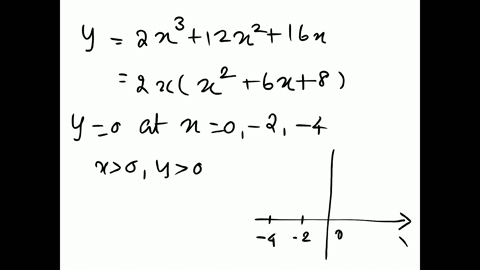 y = 2x³+12x²+16x
= 2x(x²+6x+8)
y=0 at x=0,-2,-4
x>0, y>0
-4 -2 0